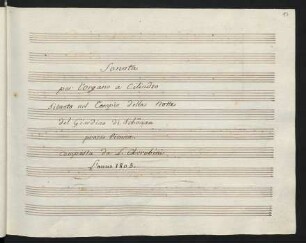 Sonata
per l'organo a Cilindro
situato nel Tempio della Notte
del Giardino di Schönau
presso Vienna
composta da L. Cherubini
L'anno 1805.